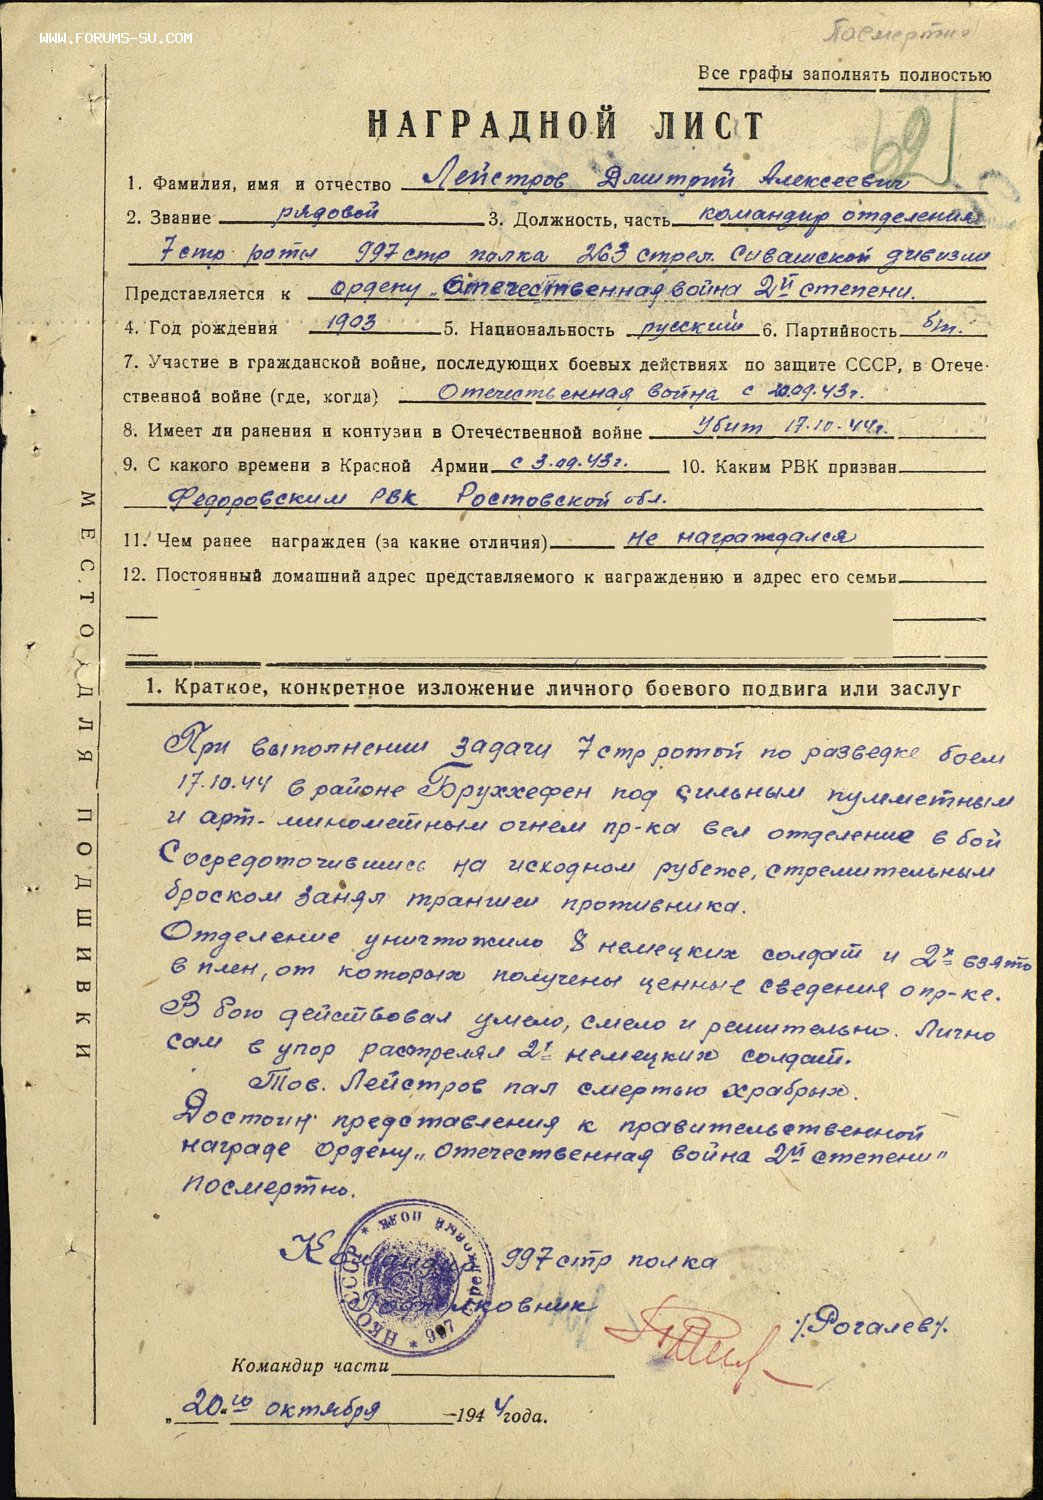 WWW.FORUMS-SU.COM
Посмертно
Все графы заполнять полностью
НАГРАДНОЙ ЛИСТ
1. Фамилия, имя и отчество Лейстров Дмитрий Алексеевич
2. Звание рядовой 3. Должность, часть командир отделения
7 стр роты 997 стр полка 263 стрел. Сивашской дивизии
Представляется к ордену „Отечественная война 2й степени.
4. Год рождения 1903 5. Национальность русский 6. Партийность б/п.
7. Участие в гражданской войне, последующих боевых действиях по защите СССР, в Отече-
ственной войне (где, когда) Отечественная война с 20.09.43г.
8. Имеет ли ранения и контузии в Отечественной войне Убит 17.10.44г.
9. С какого времени в Красной Армии с 3.09.43г. 10. Каким РВК призван
Федоровским РВК Ростовской обл.
11. Чем ранее награжден (за какие отличия) не награждался
12. Постоянный домашний адрес представляемого к награждению и адрес его семьи
МЕСТО ДЛЯ ПОДШИВКИ
1. Краткое, конкретное изложение личного боевого подвига или заслуг
При выполнении задачи 7 стр ротой по разведке боем
17.10.44 в районе Бруххефен под сильным пулметным
и арт-минометным огнем пр-ка вел отделение в бой
Сосредоточившись на исходном рубеже, стремительным
броском занял траншеи противника.
Отделение уничтожило 8 немецких солдат и 2х взято
в плен, от которых получены ценные сведения о пр-ке.
В бою действовал умело, смело и решительно. Лично
сам в упор расстрелял 2х немецких солдат.
Тов. Лейстров пал смертью храбрых.
Достоин представления к правительственной
награде ордену „Отечественная война 2й степени"
посмертно.
Командир 997 стр полка
Подполковник /Рогалев/.
НКО СССР * 997 стрелковый полк *
Командир части
„20"го октября 1944 года.